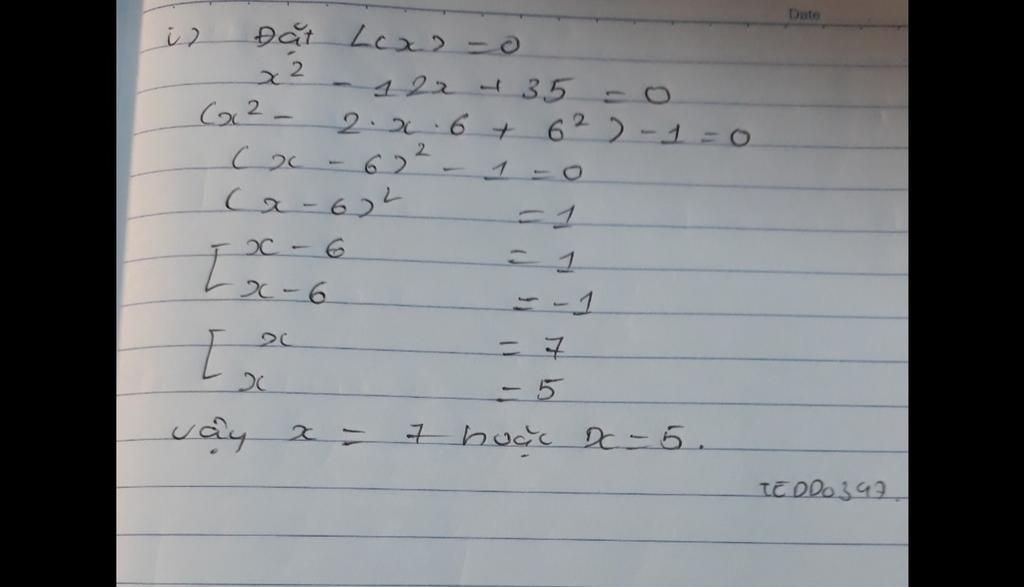 Date
i) Đặt L(x) = 0
x² - 12x + 35 = 0
(x² - 2·x·6 + 6²) - 1 = 0
(x - 6)² - 1 = 0
(x - 6)² = 1
[ x - 6 = 1
x - 6 = -1
[ x = 7
x = 5
vậy x = 7 hoặc x = 5.